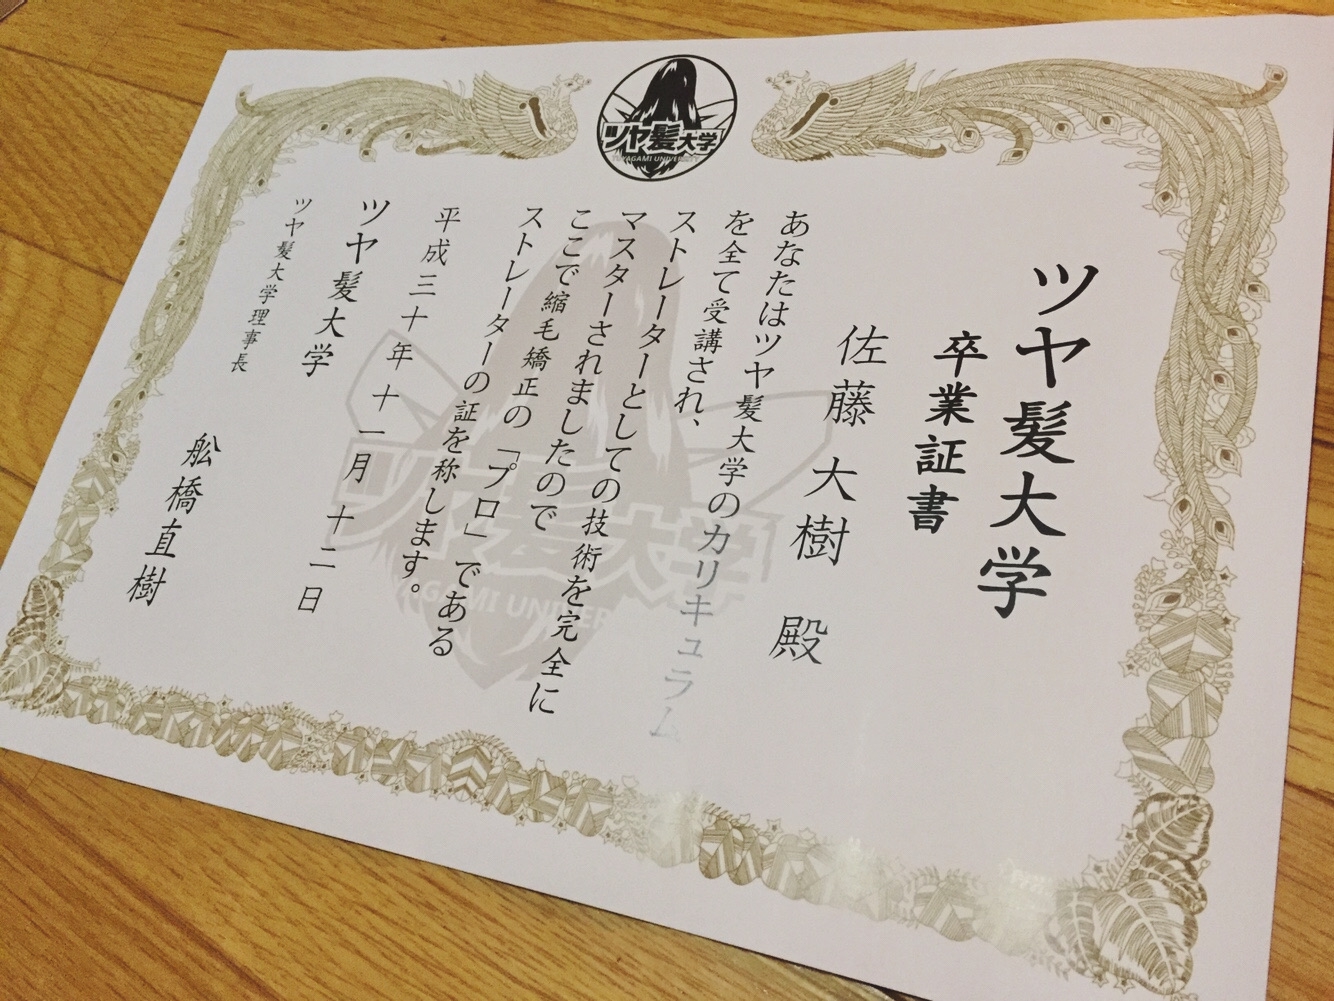 ツヤ髪大学
ツヤ髪大学
卒業証書
佐藤 大樹 殿
あなたはツヤ髪大学のカリキュラム
を全て受講され、
ストレーターとしての技術を完全に
マスターされましたので
ここで縮毛矯正の「プロ」である
ストレーターの証を称します。
平成三十年 十一月 十二日
ツヤ髪大学
ツヤ髪大学理事長
舩橋直樹
ツヤ髪大学